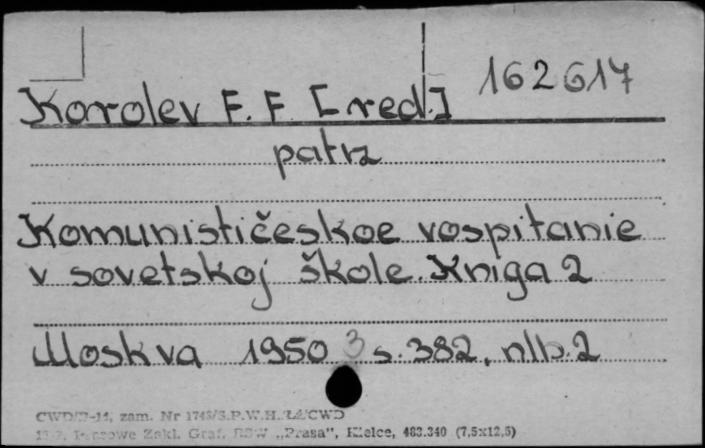 162617
Korolev F. F. [red.]
patrz
Komunističeskoe vospitanie
v sovetskoj škole. Kniga 2
Moskva 1950 3 s. 382, nlb. 2
zam. Nr
Zakl. Graf. RSW „Prasa”, Kielce, 463.340 (7,5x12,5)